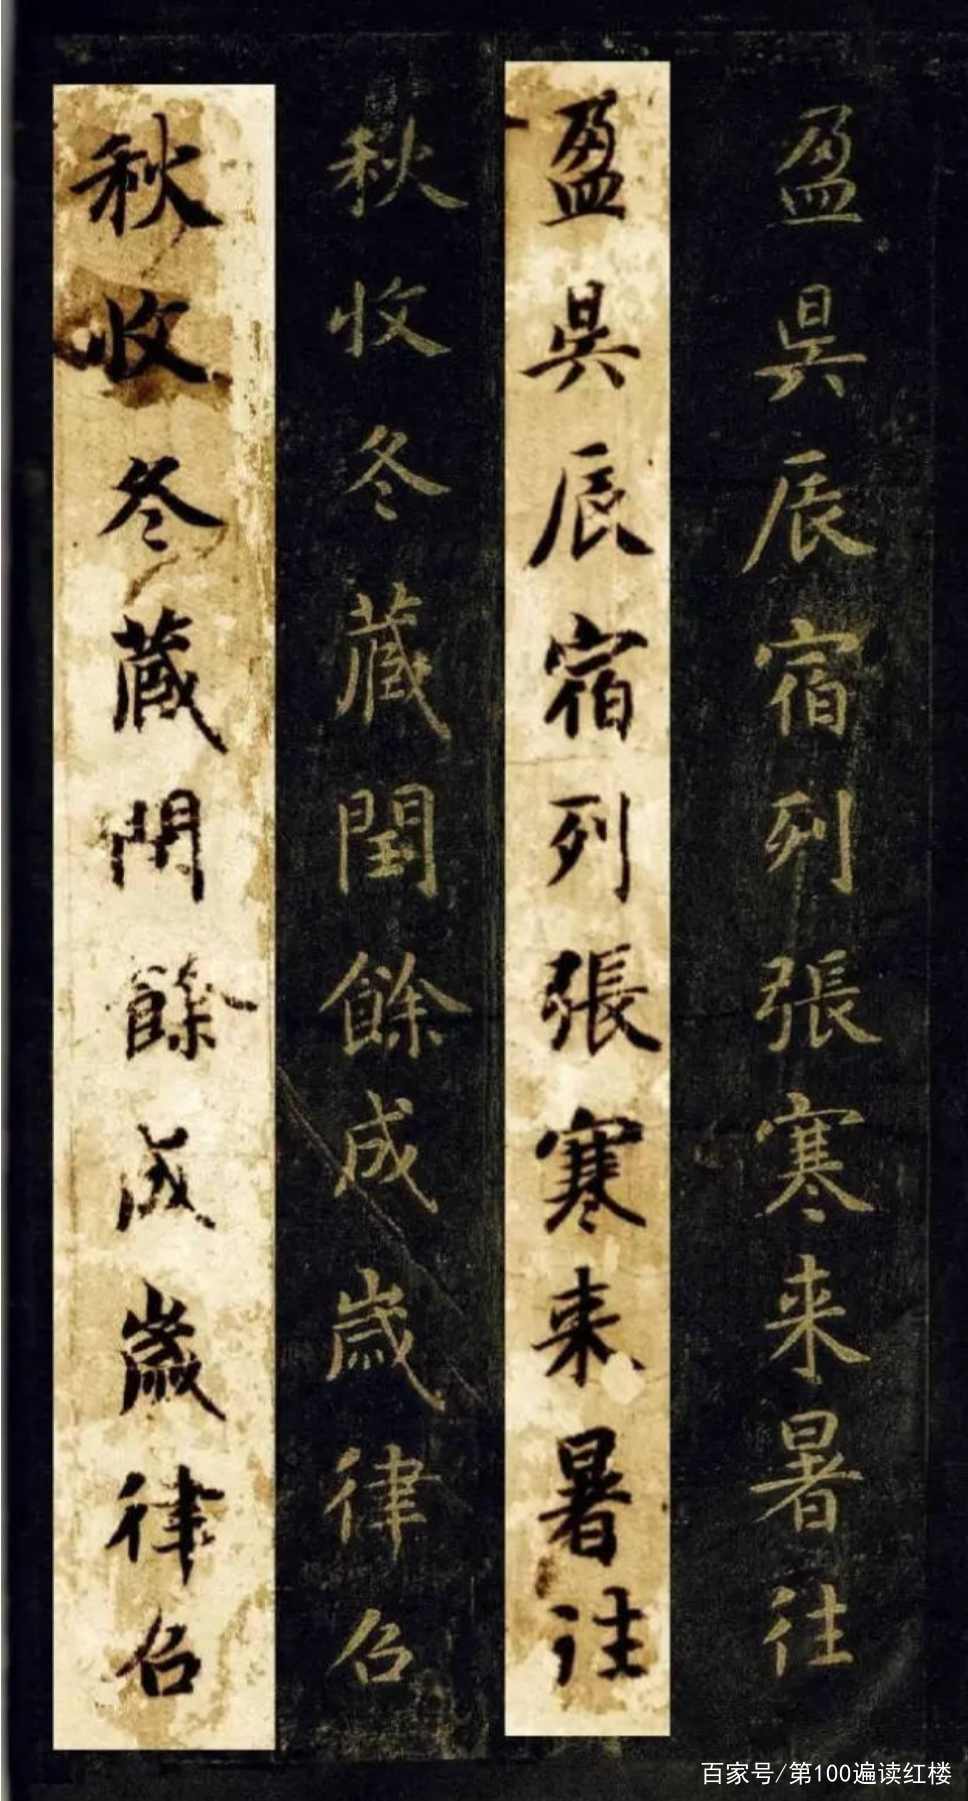 盈昃辰宿列張寒来暑往
盈昃辰宿列張寒来暑往
秋收冬蔵閏餘成歳律召
秋收冬蔵閏餘成歳律召
百家号/第100遍读红楼